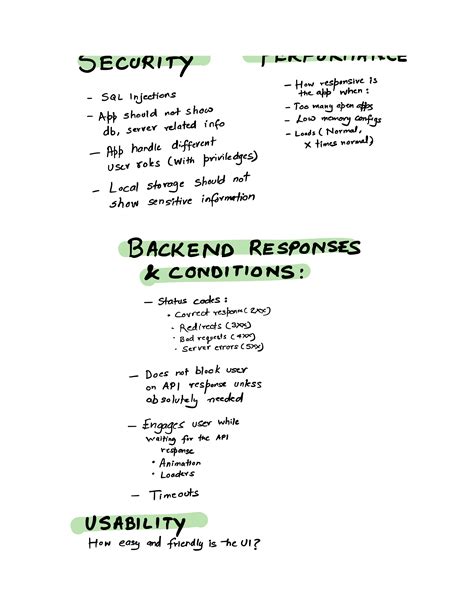 SECURITY
- SQL Injections
- App should not show
db, server related info
- App handle different
user roles (with priviledges)
- Local storage should not
show sensitive information
PERFORMANCE
- How responsive is
the app when:
- Too many open apps
- Low memory configs
- Loads (Normal,
X times normal)
BACKEND RESPONSES
& CONDITIONS:
- Status codes:
• Correct response (2xx)
• Redirects (3xx)
• Bad requests (4xx)
• Server errors (5xx)
- Does not block user
on API response unless
absolutely needed
- Engages user while
waiting for the API
response
• Animation
• Loaders
- Timeouts
USABILITY
How easy and friendly is the UI?